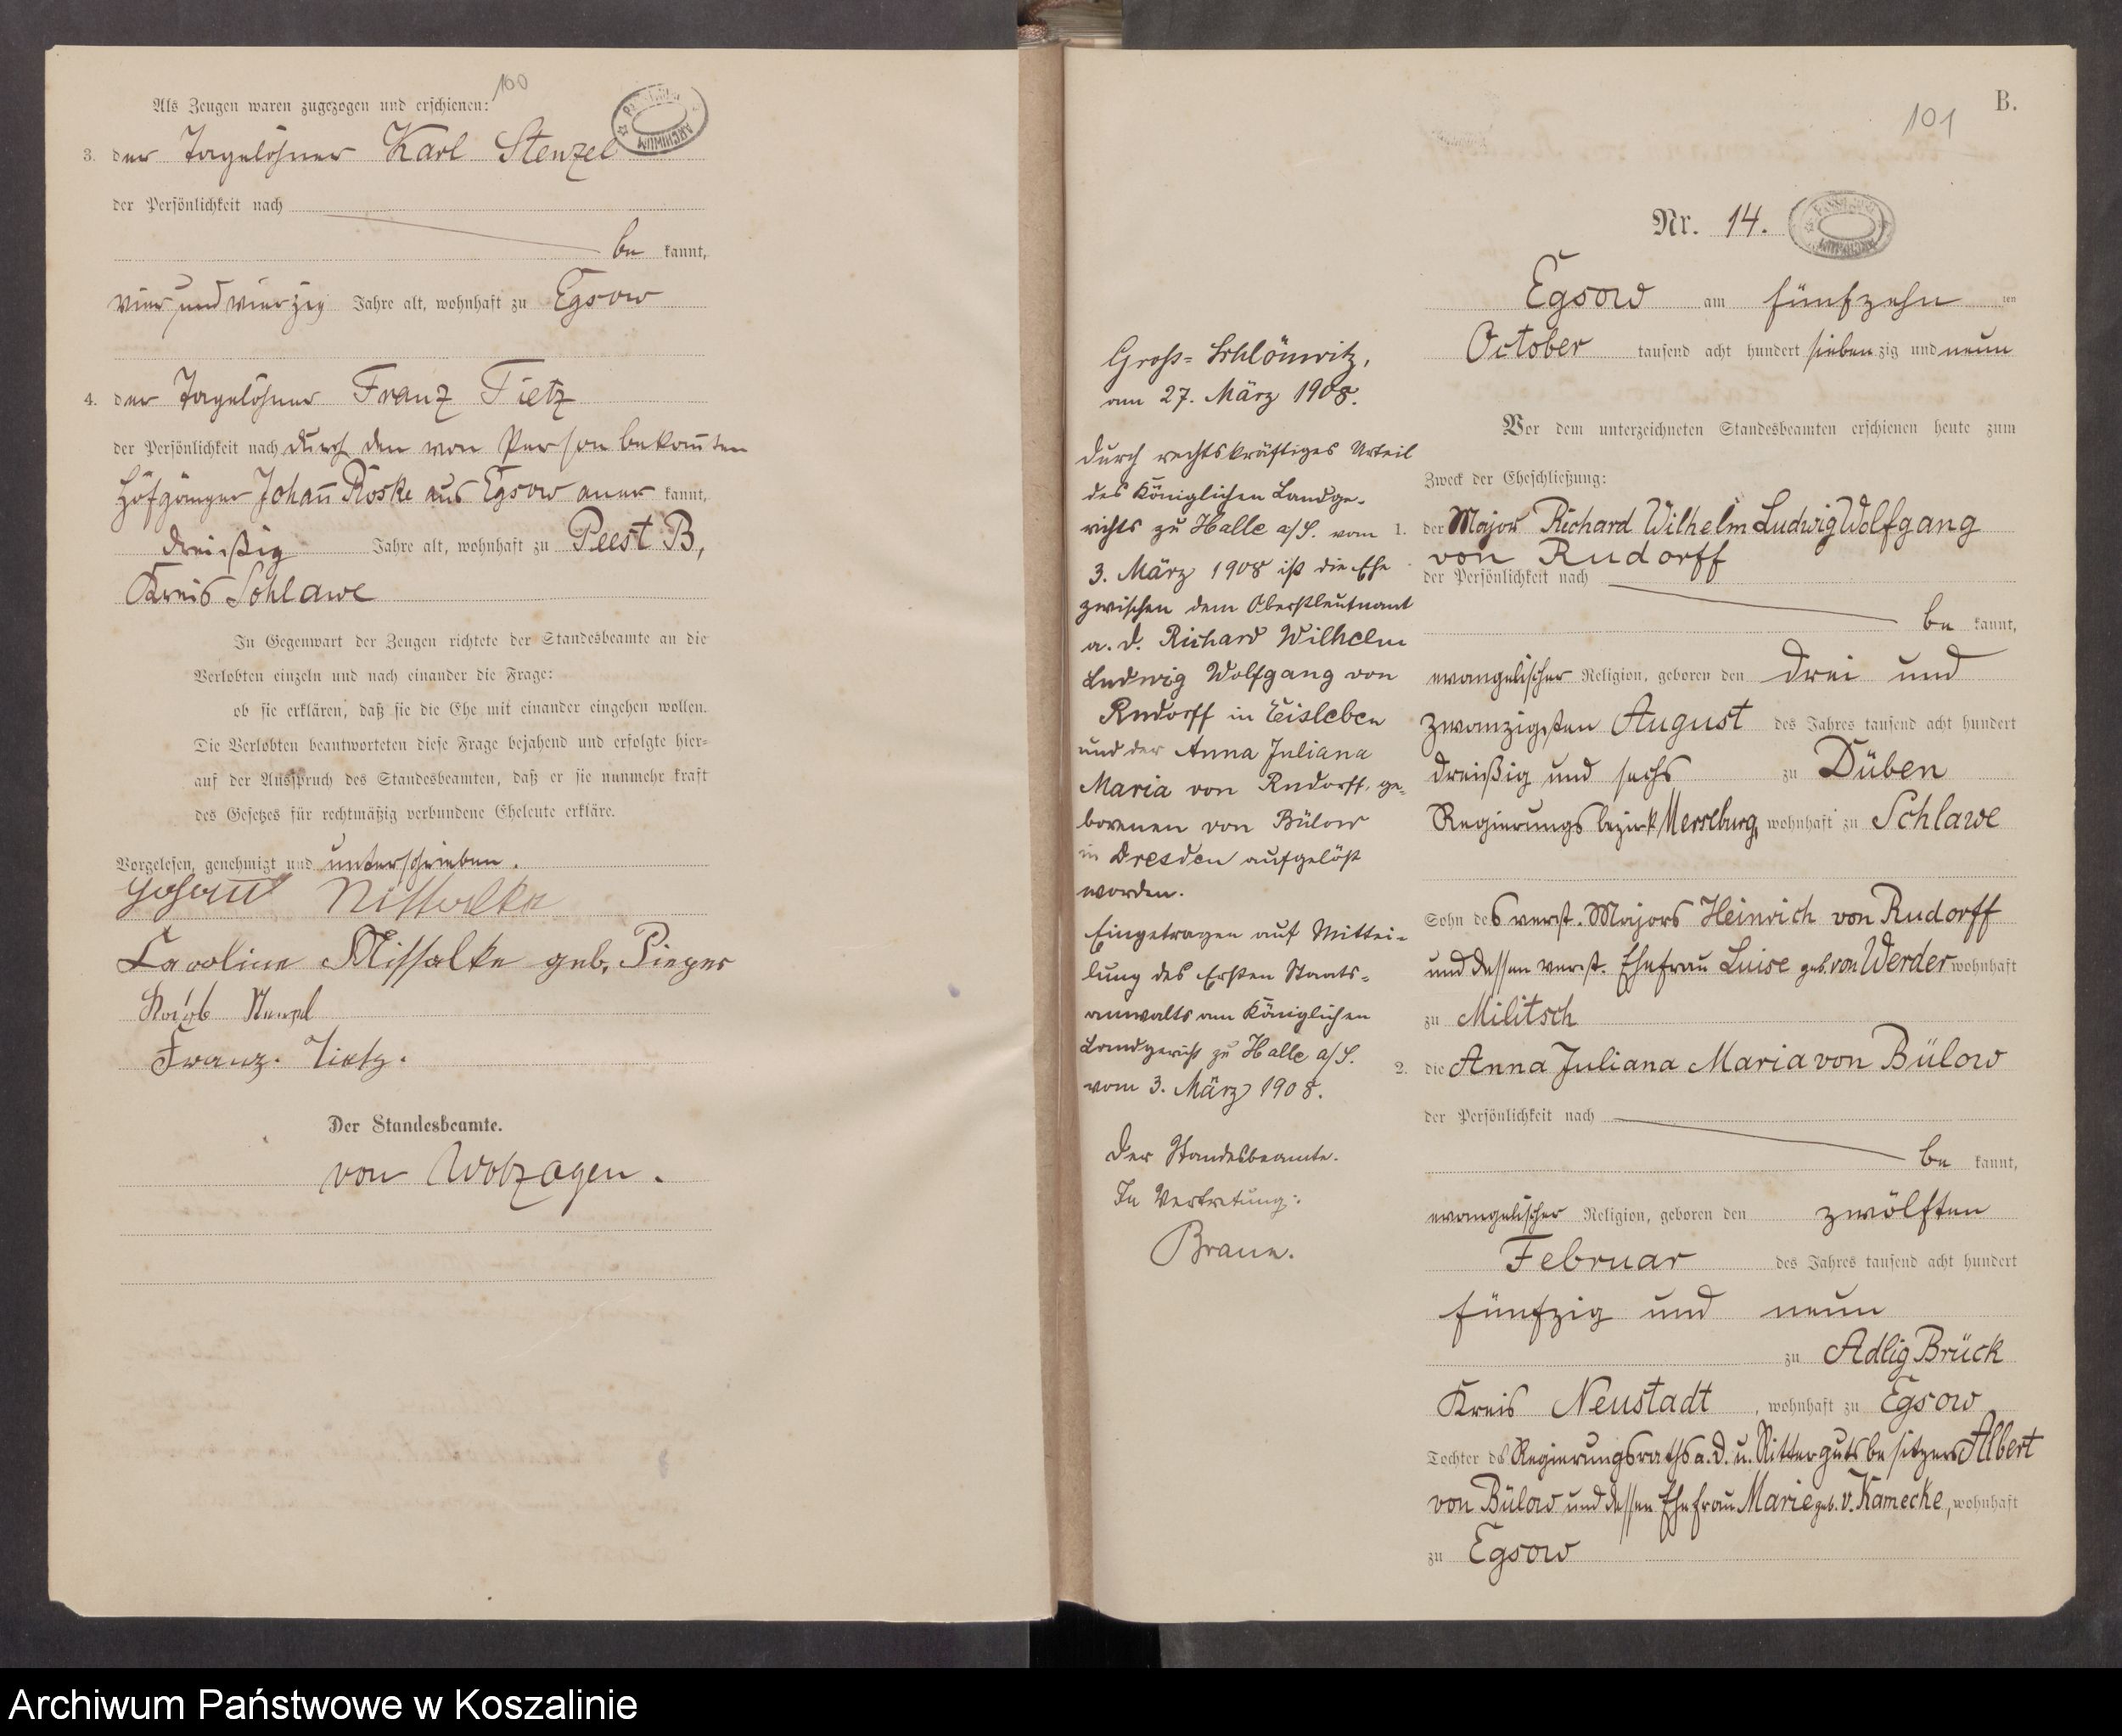 100
Als Zeugen waren zugezogen und erschienen:
3. der Tagelöhner Karl Stenzel
der Persönlichkeit nach
be kannt,
vier und vierzig Jahre alt, wohnhaft zu Egsow
4. der Tagelöhner Franz Tietz
der Persönlichkeit nach durch den von Person bekannten
Hofgänger Johann Röske aus Egsow aner kannt,
dreißig Jahre alt, wohnhaft zu Peest B,
Kreis Schlawe
In Gegenwart der Zeugen richtete der Standesbeamte an die
Verlobten einzeln und nach einander die Frage:
ob sie erklären, daß sie die Ehe mit einander eingehen wollen.
Die Verlobten beantworteten diese Frage bejahend und erfolgte hier=
auf der Ausspruch des Standesbeamten, daß er sie nunmehr kraft
des Gesetzes für rechtmäßig verbundene Eheleute erkläre.
Vorgelesen, genehmigt und unterschrieben.
Johann Missalke
Caroline Missalke geb. Pieper
Franz. Tietz.
Der Standesbeamte.
von Wolzogen.
B.
101
Nr. 14.
Egsow am fünfzehn ten
October tausend acht hundert siebenzig und neun
Vor dem unterzeichneten Standesbeamten erschienen heute zum
Zweck der Eheschließung:
1. der Major Richard Wilhelm Ludwig Wolfgang
von Rudorff
der Persönlichkeit nach
be kannt,
evangelischer Religion, geboren den drei und
zwanzigsten August des Jahres tausend acht hundert
dreißig und sechs zu Düben
Regierungsbezirk Merseburg, wohnhaft zu Schlawe
Sohn des verst. Majors Heinrich von Rudorff
und dessen verst. Ehefrau Luise geb. von Werder wohnhaft
zu Militsch
2. die Anna Juliana Maria von Bülow
der Persönlichkeit nach
be kannt,
evangelischer Religion, geboren den zwölften
Februar des Jahres tausend acht hundert
fünfzig und neun
zu Adlig Brück
Kreis Neustadt, wohnhaft zu Egsow
Tochter des Regierungsraths a. D. u. Rittergutsbesitzers Albert
von Bülow und dessen Ehefrau Marie geb. v. Kamecke, wohnhaft
zu Egsow
Gross=Schlönwitz,
am 27. März 1908.
Durch rechtskräftiges Urteil
des Königlichen Landge-
richts zu Halle a/S. vom
3. März 1908 ist die Ehe
zwischen dem Oberstleutnant
a. D. Richard Wilhelm
Ludwig Wolfgang von
Rudorff in Eisleben
und der Anna Juliana
Maria von Rudorff, ge=
borenen von Bülow
in Dresden aufgelöst
worden.
Eingetragen auf Mittei=
lung des Ersten Staats=
anwalts am Königlichen
Landgericht zu Halle a/S.
vom 3. März 1908.
Der Standesbeamte.
In Vertretung:
Braun.
Archiwum Państwowe w Koszalinie